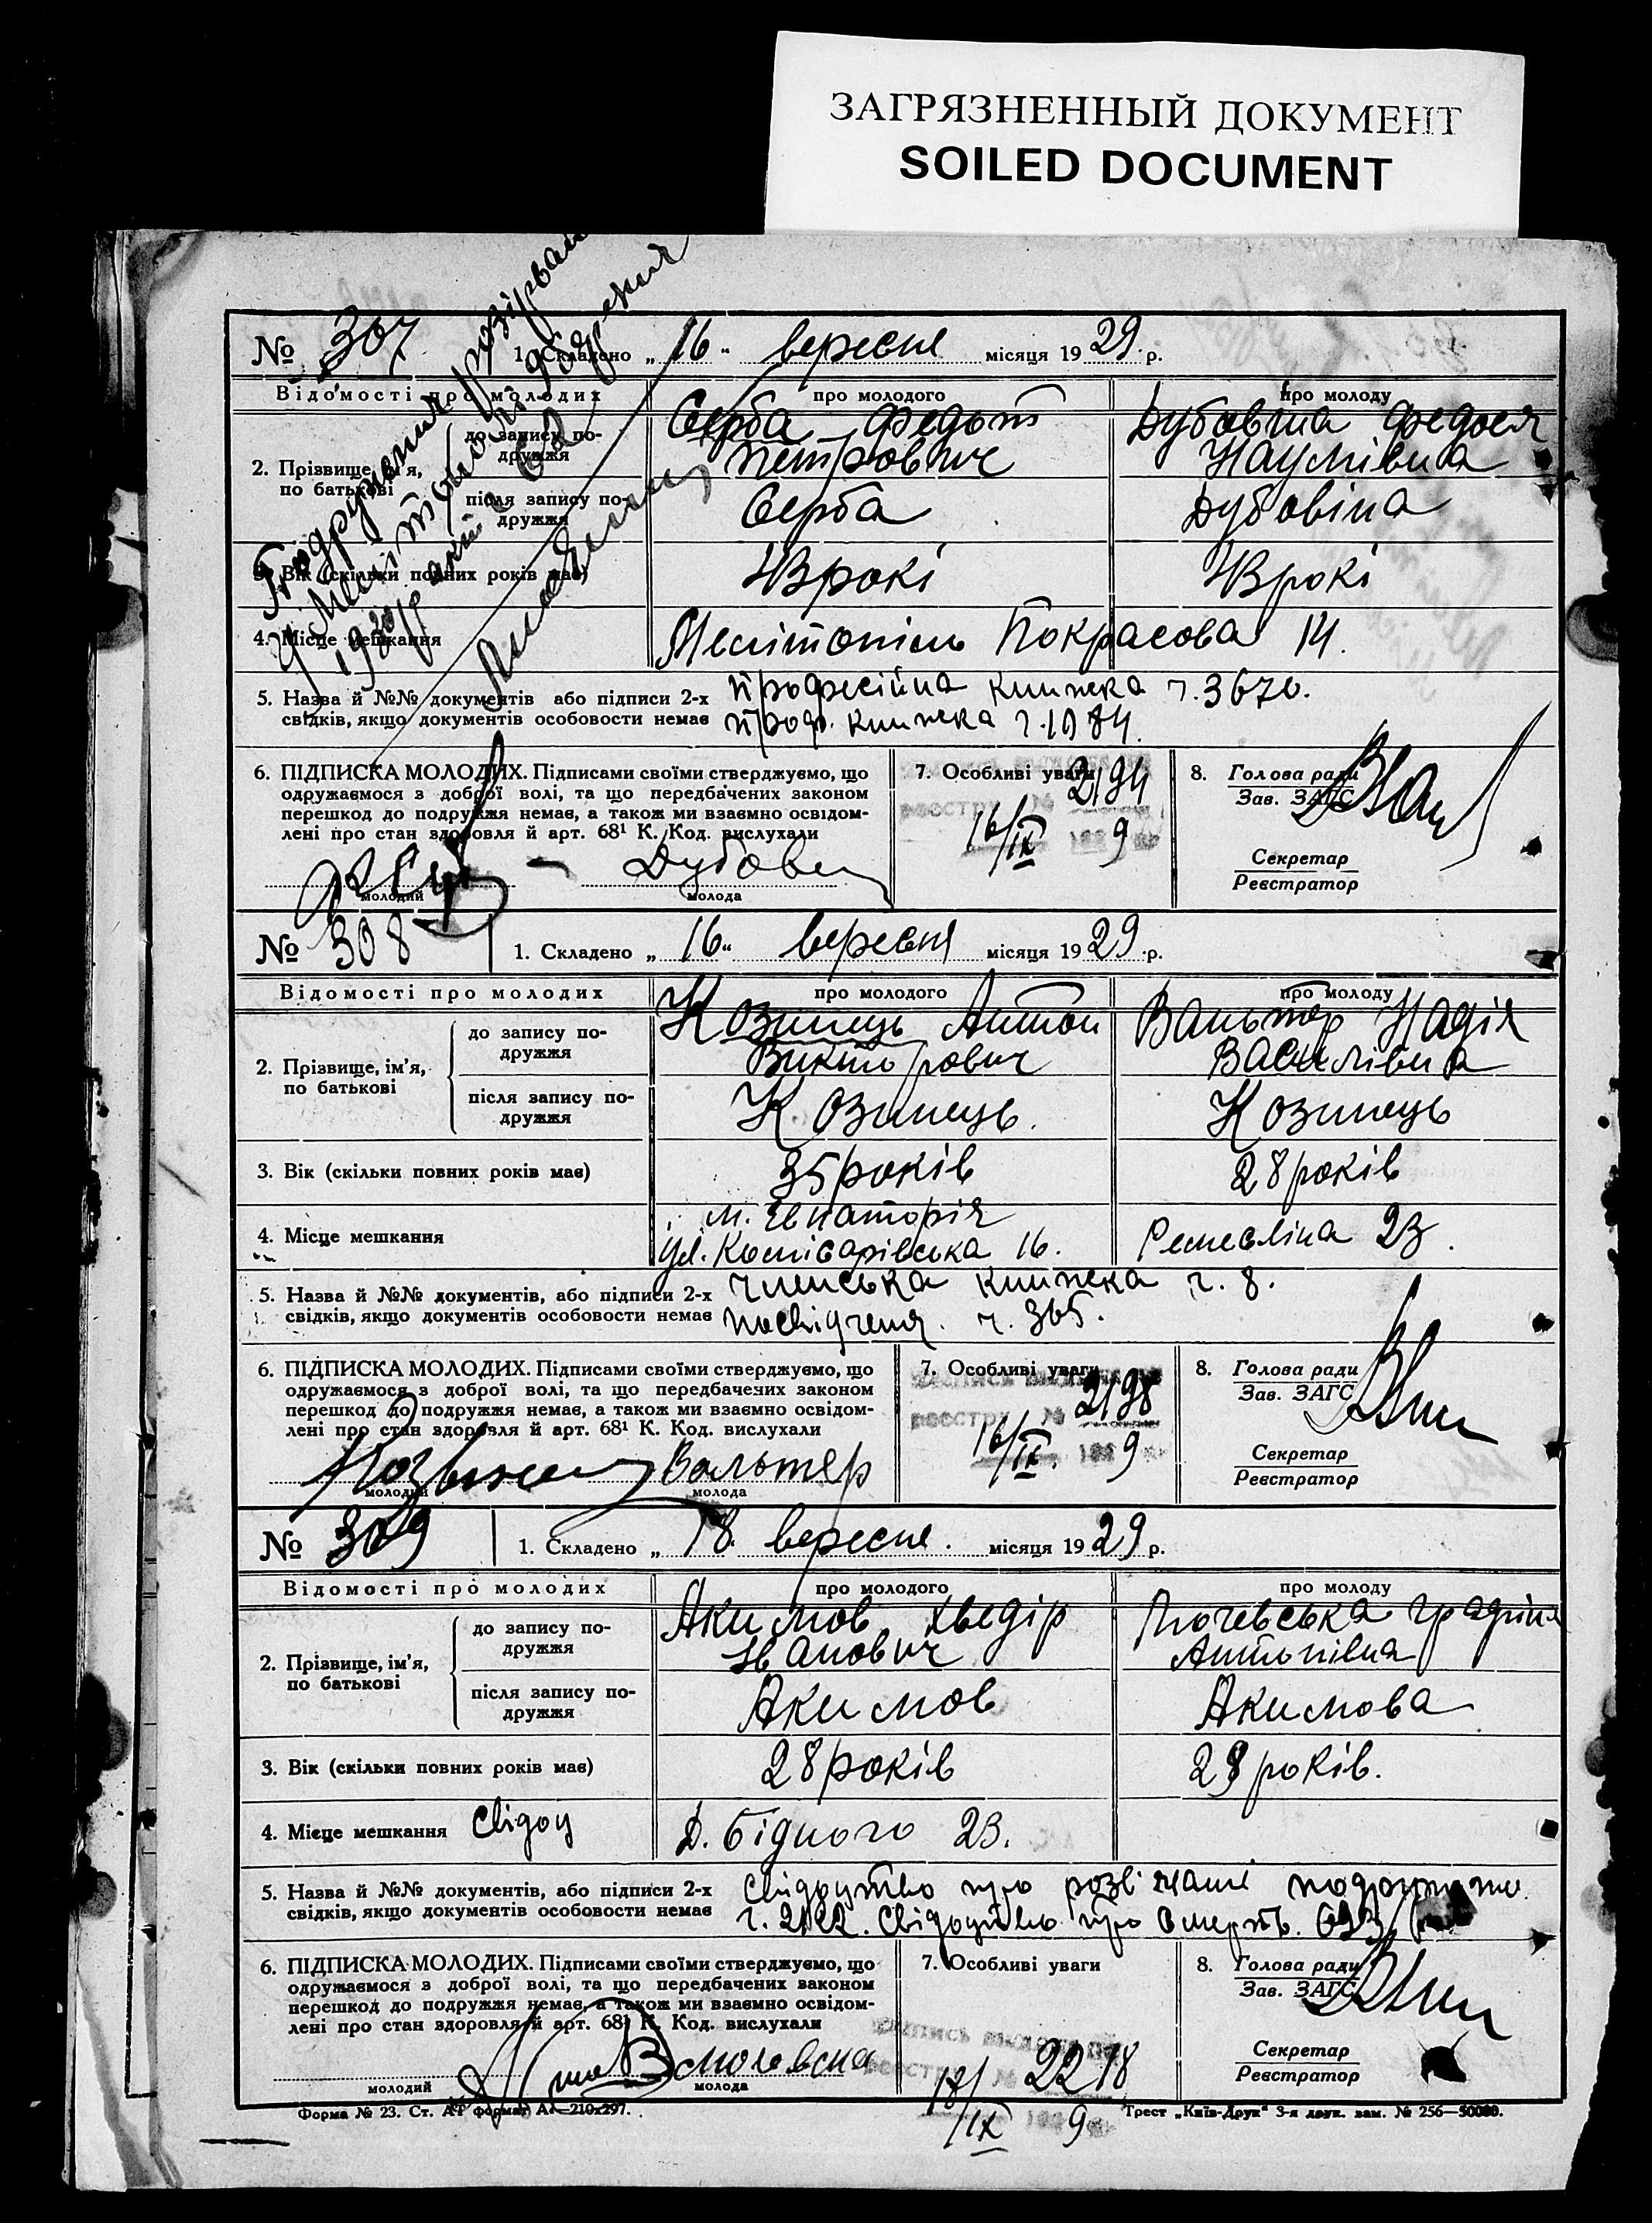 ЗАГРЯЗНЕННЫЙ ДОКУМЕНТ
SOILED DOCUMENT
Подружжя розірвано
у Мелітополі
1930 р. акт
№ 307 1. Складено „16“ вересня місяця 1929 р.
Відомості про молодих про молодого про молоду
2. Прізвище, ім'я, по батькові
до запису подружжя Серба Федот Петрович Дубовіна Федося Наумівна
після запису подружжя Серба Дубовіна
3. Вік (скільки повних років має) 43 рокі 43 рокі
4. Місце мешкання Мелітопіль Покрасова 14.
5. Назва й №№ документів або підписи 2-х професійна книжка ч. 3670.
свідків, якщо документів особовости немає проф. книжка ч. 1984.
6. ПІДПИСКА МОЛОДИХ. Підписами своїми стверджуємо, що
одружаємося з доброї волі, та що передбачених законом
перешкод до подружжя немає, а також ми взаємно освідом-
лені про стан здоровля й арт. 68¹ К. Код. вислухали
молодий молода
7. Особливі уваги 2194
реестру №
16/IX 1929
8. Голова ради
Зав. ЗАГС
Секретар
Реєстратор
№ 308 1. Складено „16“ вересня місяця 1929 р.
Відомості про молодих про молодого про молоду
2. Прізвище, ім'я, по батькові
до запису подружжя Козинець Антон Викторович Вальтер Надія Василівна
після запису подружжя Козинець. Козинець
3. Вік (скільки повних років має) 35 років 28 років
4. Місце мешкання м. Євпаторія
ул. Комісарівська 16. Ремесліна 23.
5. Назва й №№ документів, або підписи 2-х членська книжка ч. 8.
свідків, якщо документів особовости немає посвідченя. ч. 365.
6. ПІДПИСКА МОЛОДИХ. Підписами своїми стверджуємо, що
одружаємося з доброї волі, та що передбачених законом
перешкод до подружжя немає, а також ми взаємно освідом-
лені про стан здоровля й арт. 68¹ К. Код. вислухали
Вальтер
молодий молода
7. Особливі уваги 2198
реестру №
16/IX. 1929
8. Голова ради
Зав. ЗАГС
Секретар
Реєстратор
№ 309 1. Складено „18. вересня. місяця 1929 р.
Відомості про молодих про молодого про молоду
2. Прізвище, ім'я, по батькові
до запису подружжя Акимов Хведір Іванович Антонівна
після запису подружжя Акимов Акимова
3. Вік (скільки повних років має) 28 років 28 років.
4. Місце мешкання Свідоц Д. Бідного 23.
5. Назва й №№ документів, або підписи 2-х свідоцтво про
свідків, якщо документів особовости немає ч. 2122. Свідоцтво про смерть.
6. ПІДПИСКА МОЛОДИХ. Підписами своїми стверджуємо, що
одружаємося з доброї волі, та що передбачених законом
перешкод до подружжя немає, а також ми взаємно освідом-
лені про стан здоровля й арт. 68¹ К. Код. вислухали
молодий молода
7. Особливі уваги
реестру № 2218
18/IX 1929
8. Голова ради
Зав. ЗАГС
Секретар
Реєстратор
Форма № 23. Ст. АТ формат А4—210x297. Трест „Київ-Друк“ 3-я друк. зам. № 256—50000.